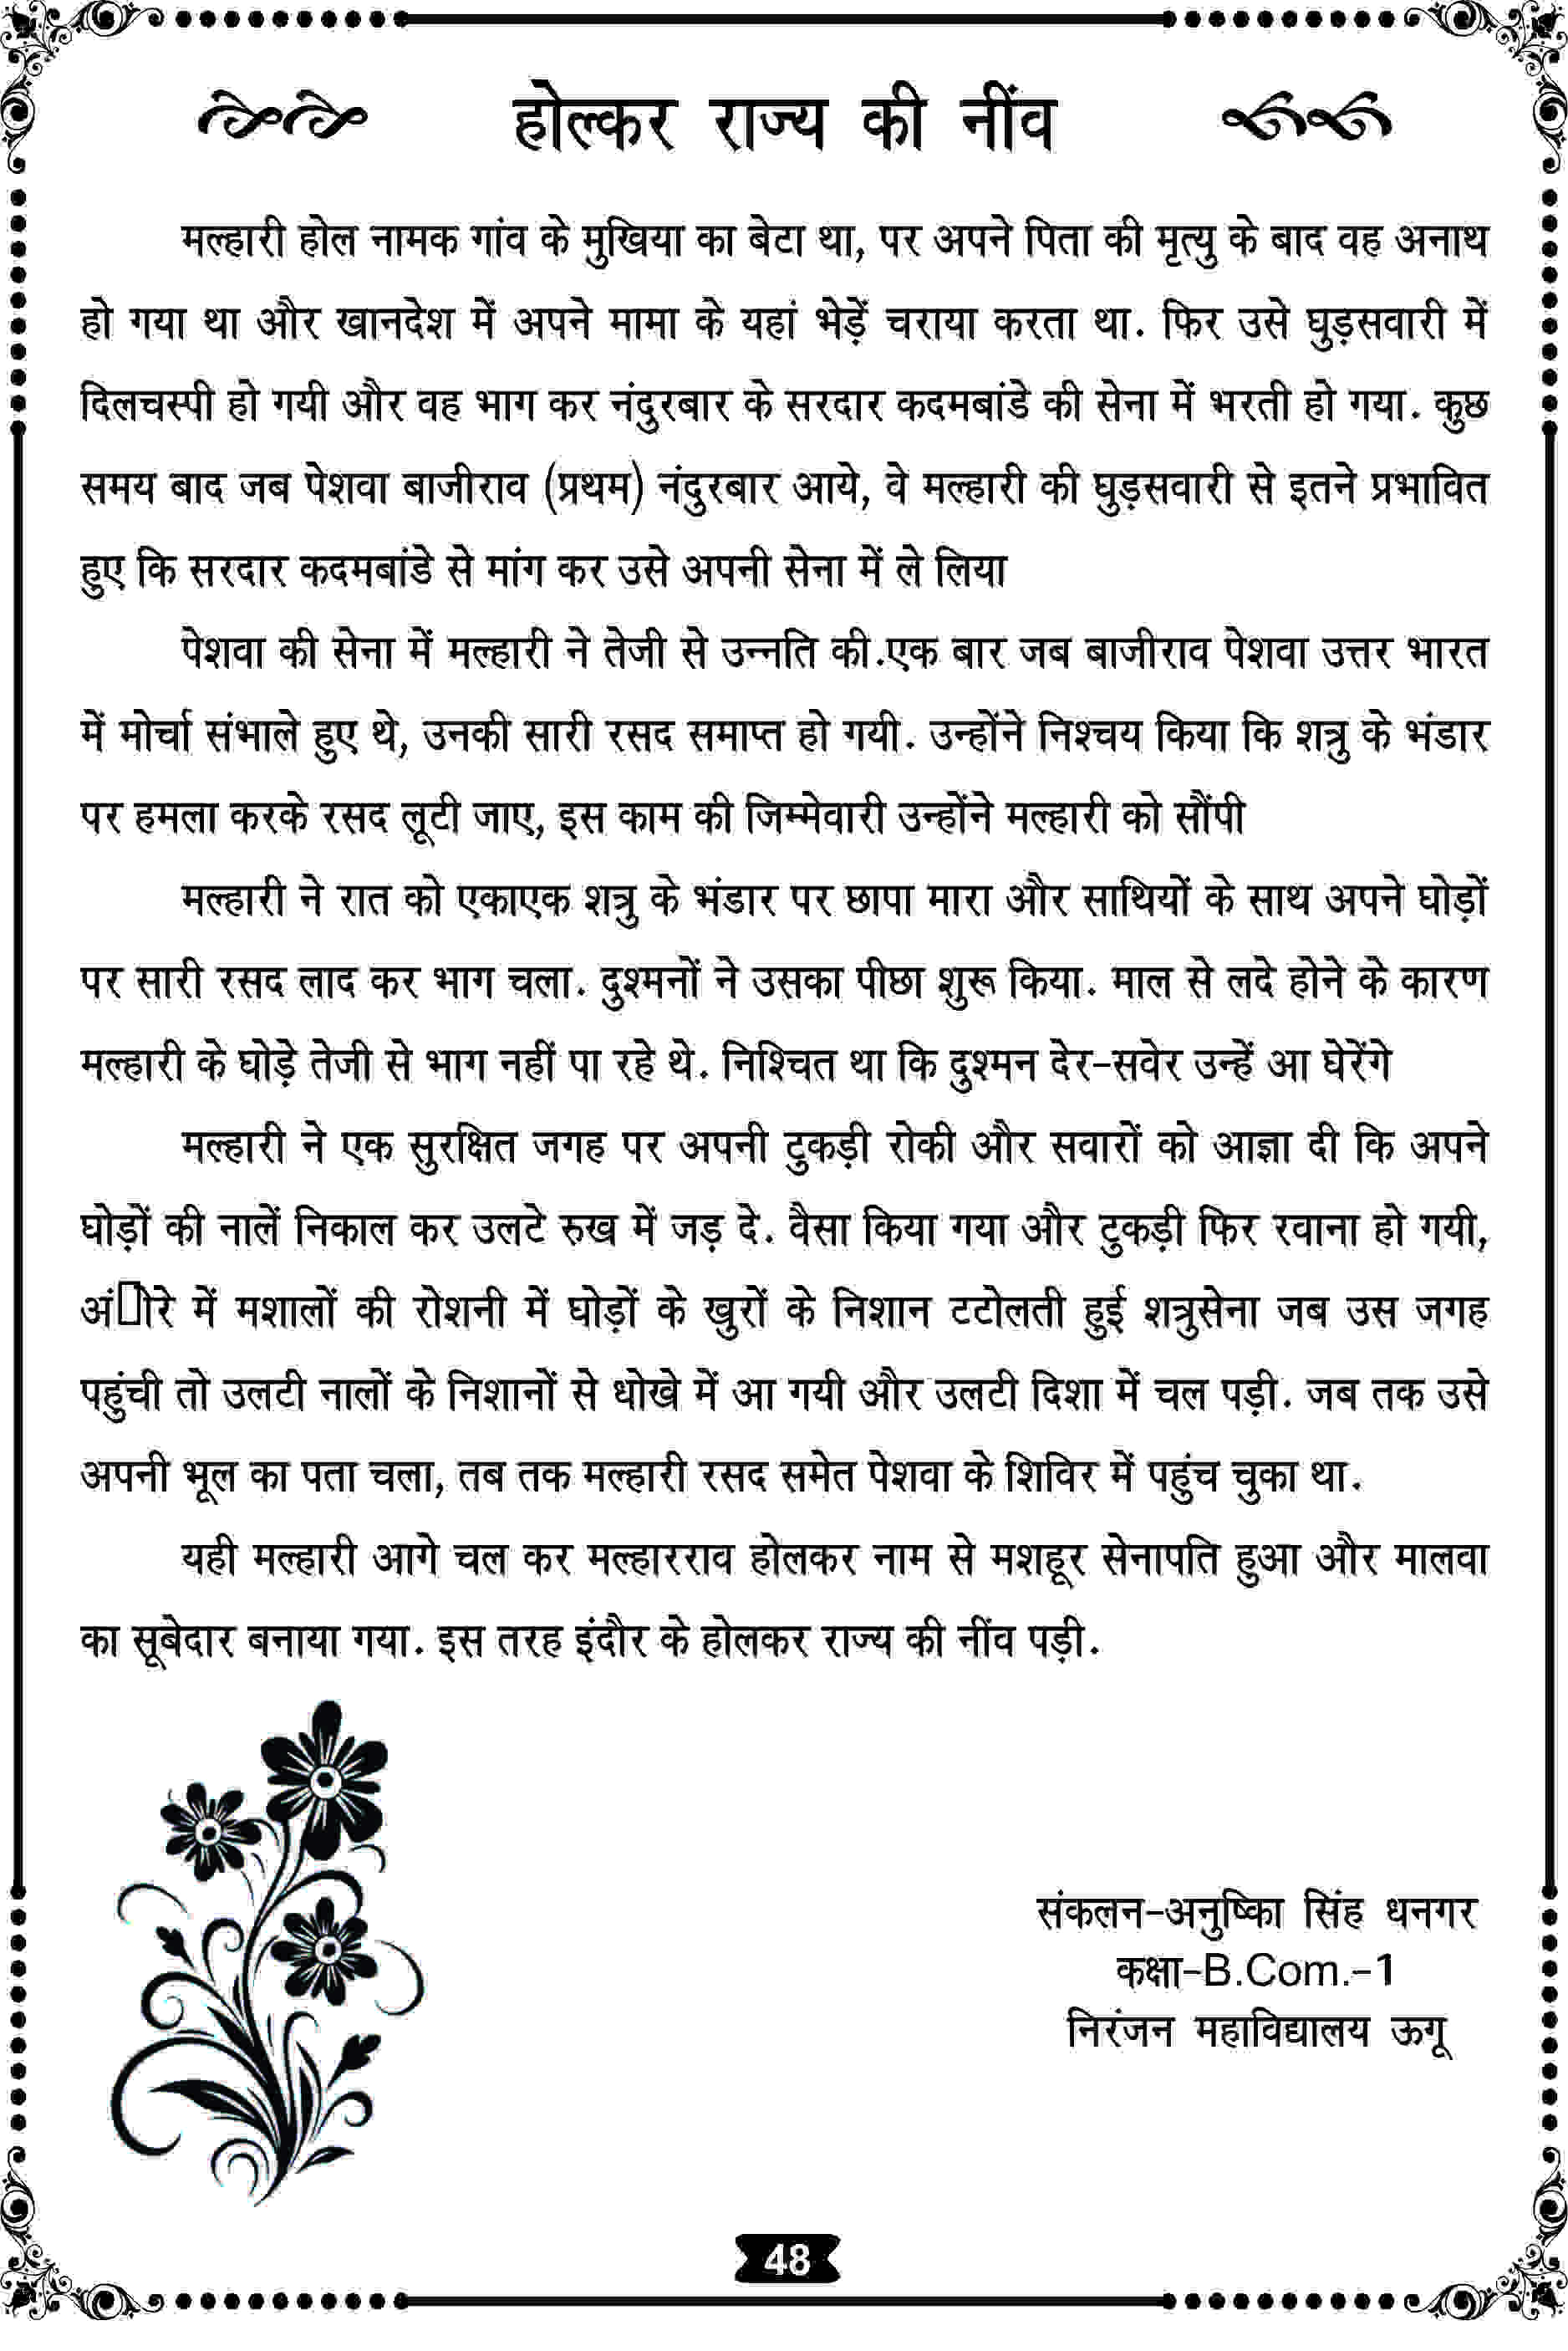 होल्कर राज्य की नींव
मल्हारी होल नामक गांव के मुखिया का बेटा था, पर अपने पिता की मृत्यु के बाद वह अनाथ
हो गया था और खानदेश में अपने मामा के यहां भेड़ें चराया करता था. फिर उसे घुड़सवारी में
दिलचस्पी हो गयी और वह भाग कर नंदुरबार के सरदार कदमबांडे की सेना में भरती हो गया. कुछ
समय बाद जब पेशवा बाजीराव (प्रथम) नंदुरबार आये, वे मल्हारी की घुड़सवारी से इतने प्रभावित
हुए कि सरदार कदमबांडे से मांग कर उसे अपनी सेना में ले लिया
पेशवा की सेना में मल्हारी ने तेजी से उन्नति की.एक बार जब बाजीराव पेशवा उत्तर भारत
में मोर्चा संभाले हुए थे, उनकी सारी रसद समाप्त हो गयी. उन्होंने निश्चय किया कि शत्रु के भंडार
पर हमला करके रसद लूटी जाए, इस काम की जिम्मेवारी उन्होंने मल्हारी को सौंपी
मल्हारी ने रात को एकाएक शत्रु के भंडार पर छापा मारा और साथियों के साथ अपने घोड़ों
पर सारी रसद लाद कर भाग चला. दुश्मनों ने उसका पीछा शुरू किया. माल से लदे होने के कारण
मल्हारी के घोड़े तेजी से भाग नहीं पा रहे थे. निश्चित था कि दुश्मन देर-सवेर उन्हें आ घेरेंगे
मल्हारी ने एक सुरक्षित जगह पर अपनी टुकड़ी रोकी और सवारों को आज्ञा दी कि अपने
घोड़ों की नालें निकाल कर उलटे रुख में जड़ दे. वैसा किया गया और टुकड़ी फिर रवाना हो गयी,
में मशालों की रोशनी में घोड़ों के खुरों के निशान टटोलती हुई शत्रुसेना जब उस जगह
पहुंची तो उलटी नालों के निशानों से धोखे में आ गयी और उलटी दिशा में चल पड़ी. जब तक उसे
अपनी भूल का पता चला, तब तक मल्हारी रसद समेत पेशवा के शिविर में पहुंच चुका था.
यही मल्हारी आगे चल कर मल्हारराव होलकर नाम से मशहूर सेनापति हुआ और मालवा
का सूबेदार बनाया गया. इस तरह इंदौर के होलकर राज्य की नींव पड़ी.
संकलन-अनुष्का सिंह धनगर
कक्षा-B.Com.-1
निरंजन महाविद्यालय ऊगू
48